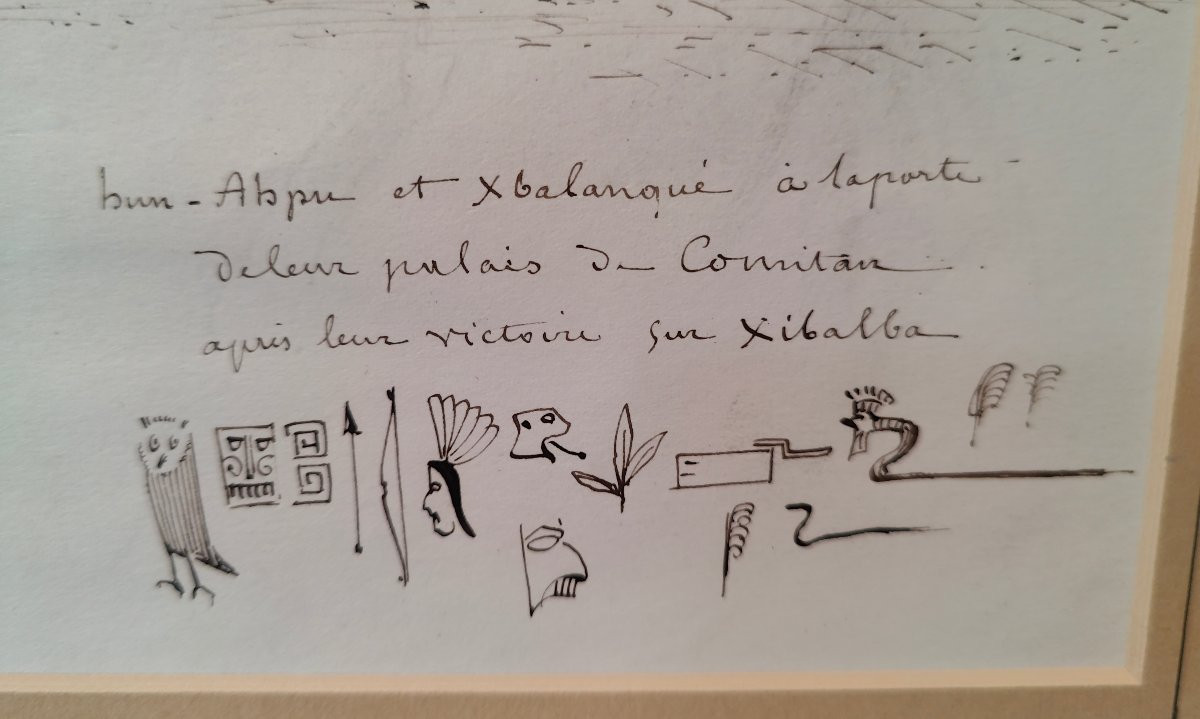 hun-Ahpu et Xbalanqué à laporte
deleur palais de Comitan
après leur victoire sur Xibalba